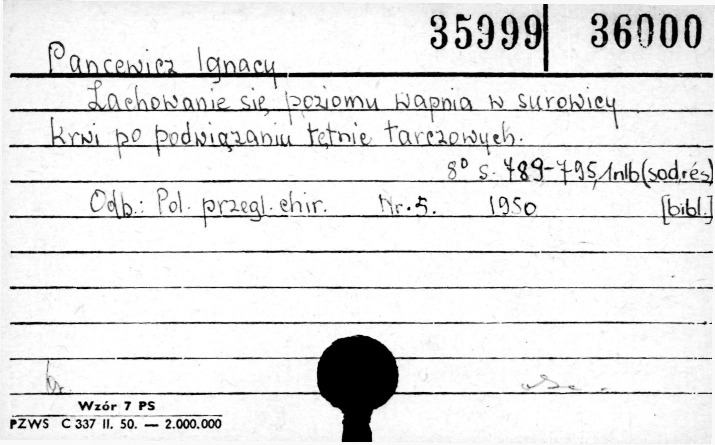 35999 36000
Pancewicz Ignacy
Zachowanie się poziomu wapnia w surowicy
krwi po podwiązaniu tętnic tarczowych.
8° s. 789-795, 1nlb (sod, rés)
Odb.: Pol. przegl. chir. Nr. 5. 1950 [bibl.]
Wzór 7 PS
PZWS C 337 II. 50. — 2.000.000